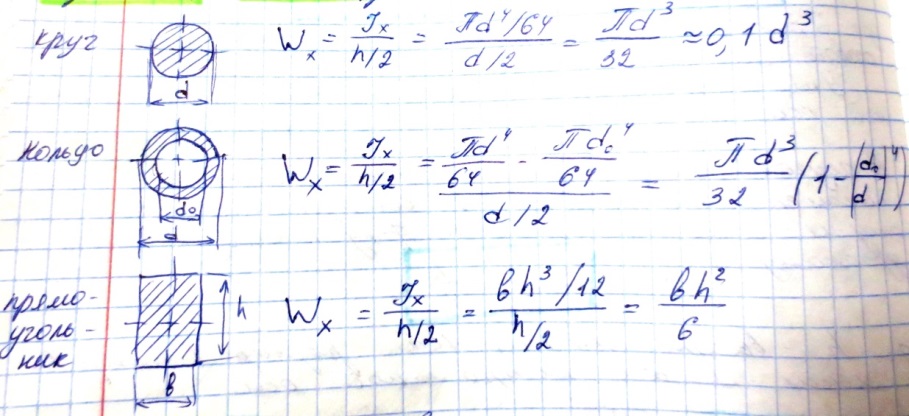 круг Wₓ = Jₓ / h/2 = Пd⁴/64 / d/2 = Пd³ / 32 ≈ 0,1 d³
d
кольцо Wₓ = Jₓ / h/2 = Пd⁴ / 64 - Пd₀⁴ / 64 / d/2 = Пd³ / 32 (1 - (d₀ / d)⁴)
d₀
d
прямо-
уголь-
ник
h Wₓ = Jₓ / h/2 = вh³/12 / h/2 = вh² / 6
в